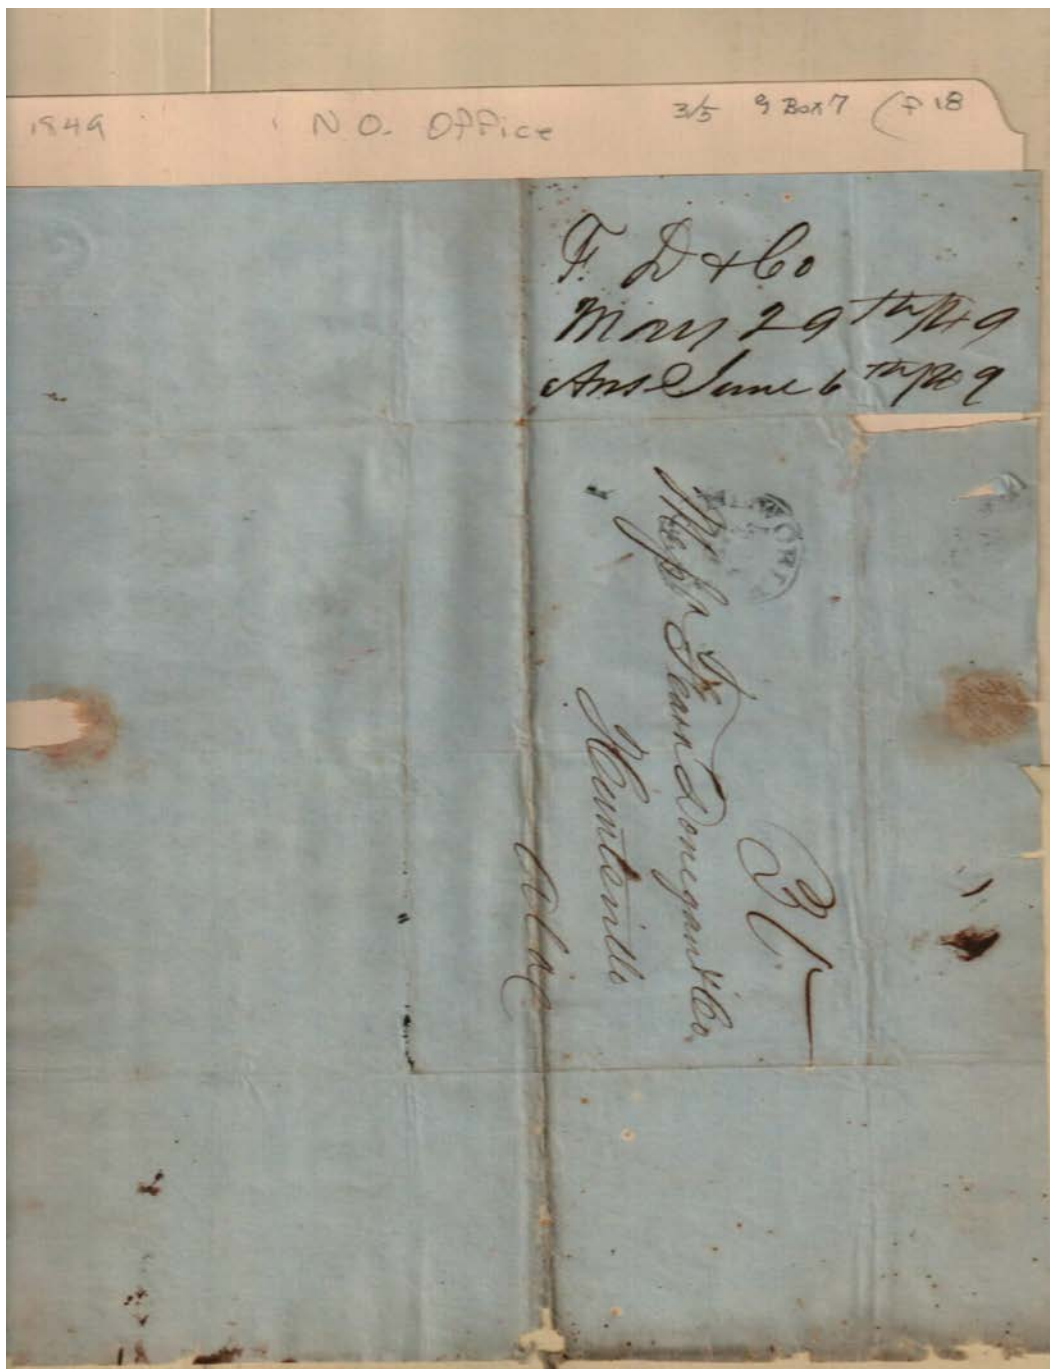 1849 N.O. Office 3/5 9 Box 7 (F 18
F. D & Co
May 29th /49
Ans June 6th /49
Messrs Fearn Donegan & Co.
Huntsville
Ala